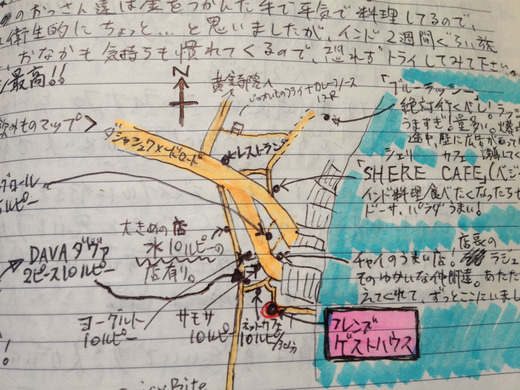 のおっさん達は金をつかんだ手で平気で料理してるので、
衛生的にちょっと…と思いましたが、インド2週間ぐらい旅
おなかも気持ちも慣れてくるので、恐れずトライしてみて下さい。
最高!!
N
黄金寺院へ
12R
「ブルーラッシー」
絶対行くべし!ラッ
うますぎ!量多い。
のみものマップ>
レストラン
シェリー カフェ
SHERE CAFE」(ベジ
インド料理食べたくなったら
ドーサ、パラダうまい。
10ルピー
大きめの店
水10ルピーの
店有り。
DAVA ダヴァ
2ピース10ルピー
チャイのうまい店。店長の
ラシュ
そのゆかいな仲間達。あたた
えてくれて、ずっとここにいまし
ヨーグルト
10ルピー
サモサ
10ルピー
ネットカフェ
フレンズ
ゲストハウス